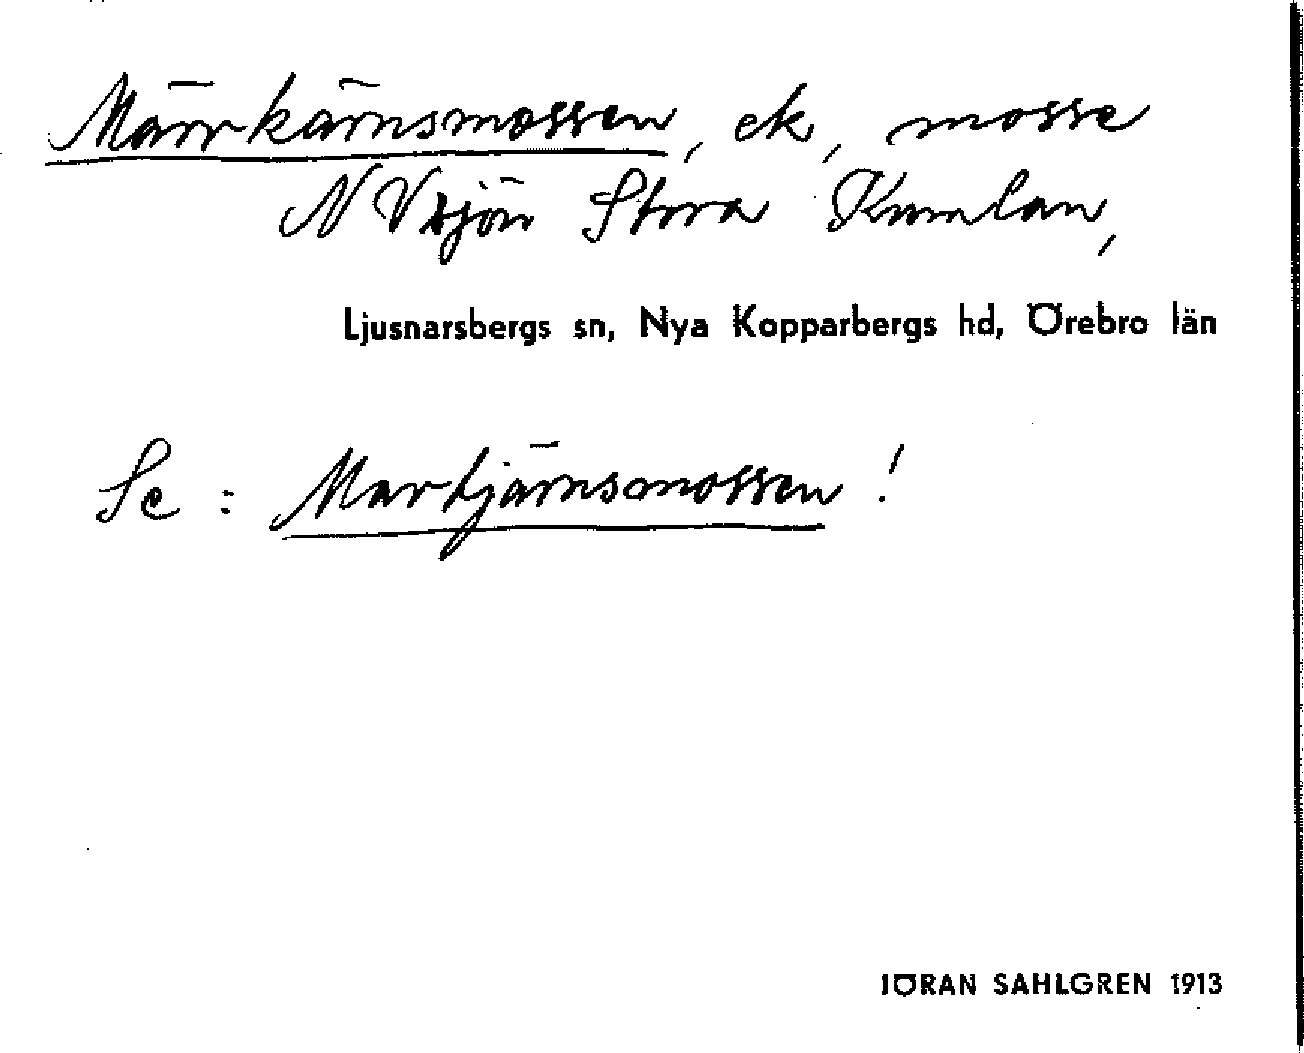 Märrkärnsmossen, ek, mosse
N V sjön Stora Kumlan,
Ljusnarsbergs sn, Nya Kopparbergs hd, Örebro län
Se: Martjärnsmossen!
JÖRAN SAHLGREN 1913